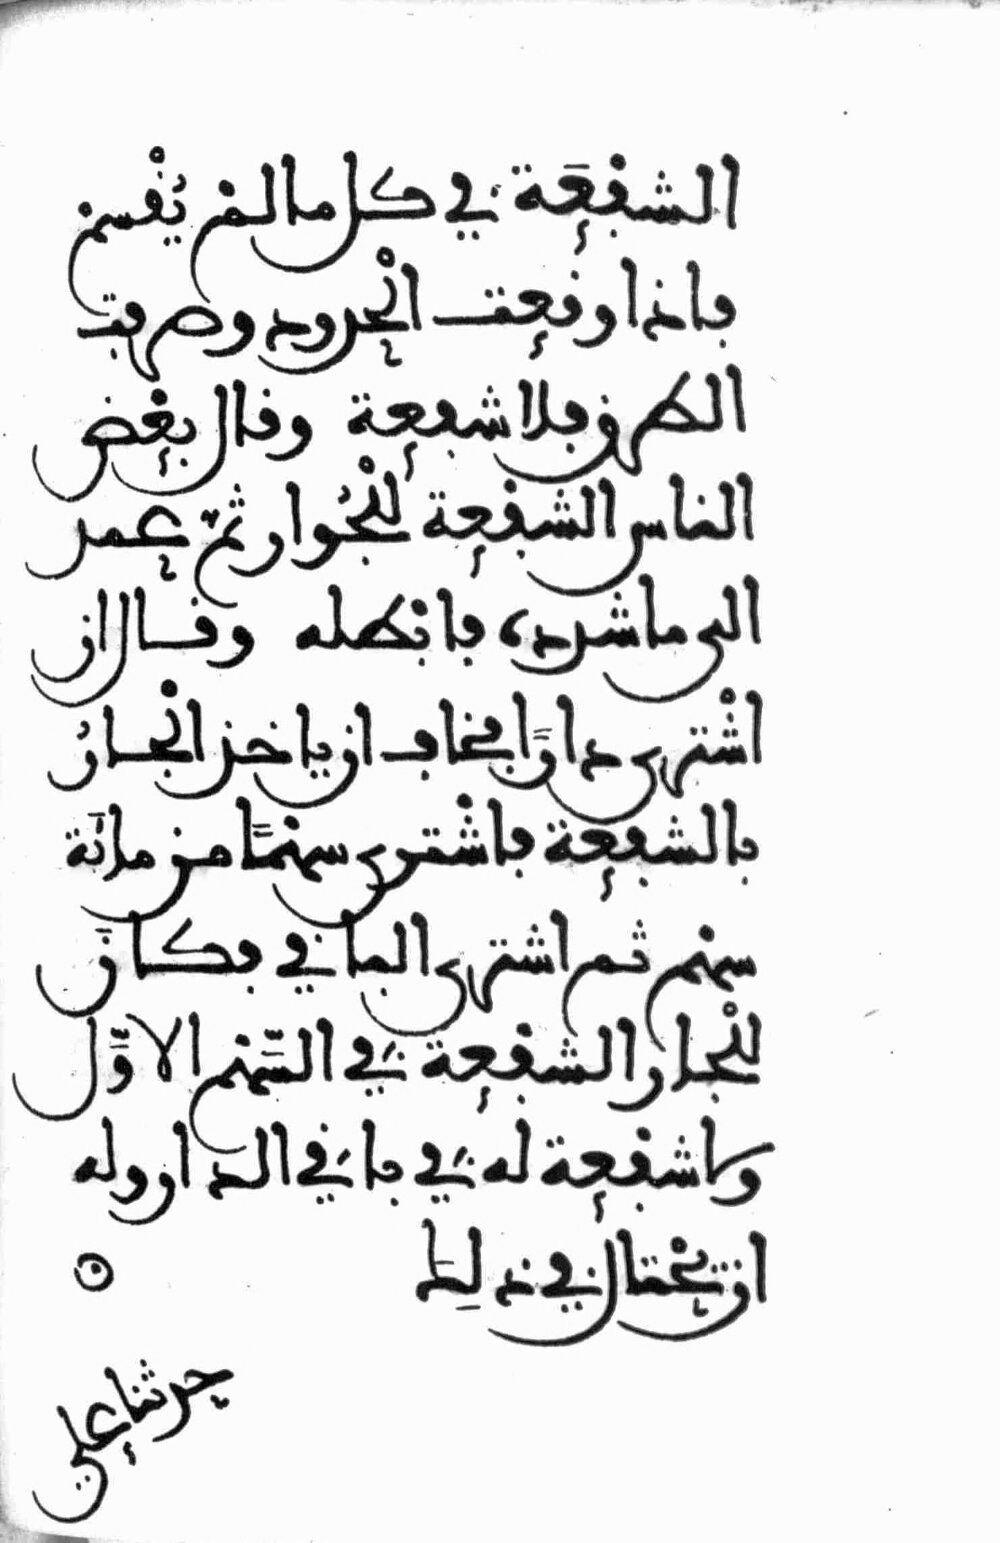 الشفعة في كل مالم يقسم
فاذا وقعت الحدود وصرفت
الطرق فلا شفعة وقال بعض
الناس الشفعة للجوار ثم عمد
الى ما شدده فابطله وقال ان
اشترى دارًا فخاف ان ياخذ الجارُ
بالشفعة فاشترى سهمًا من مائة
سهم ثم اشترى الباقي فكان
للجار الشفعة في السَّهم الاوَّل
ولا شفعة له في باقي الدار وله
ان يحتال في ذلك
حدثنا علي